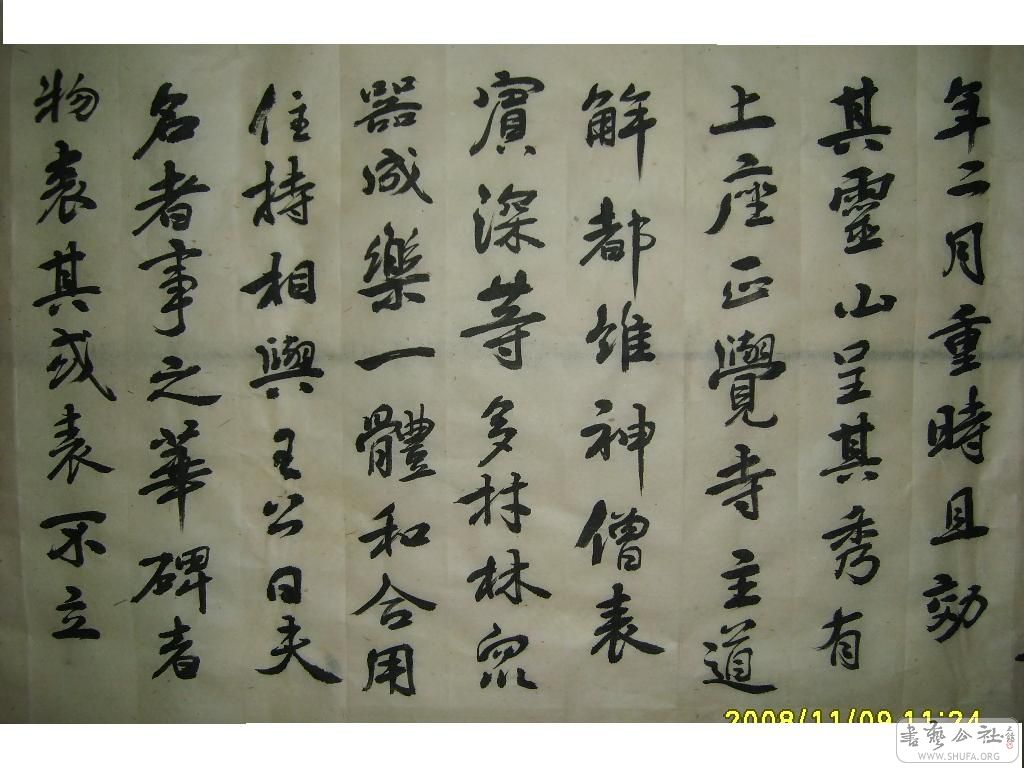 年二月重時且効
其靈山呈其秀有
上座正覺寺主道
解都維神僧表
賓深等多材林眾
器成樂一體和合用
住持相與王公曰夫
名者事之華碑者
物表其或表不立
2008/11/09 11:24
書藝公社
WWW.SHUFA.ORG